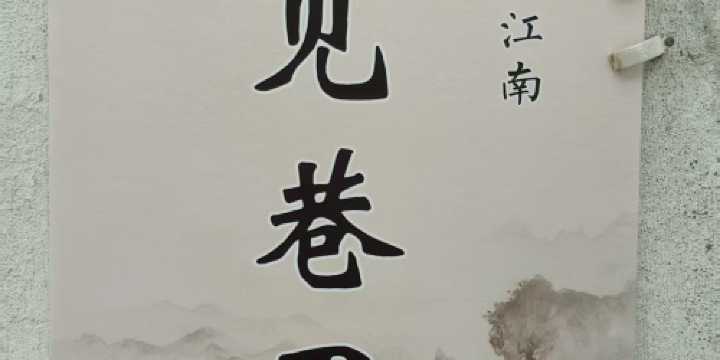 江南
见巷